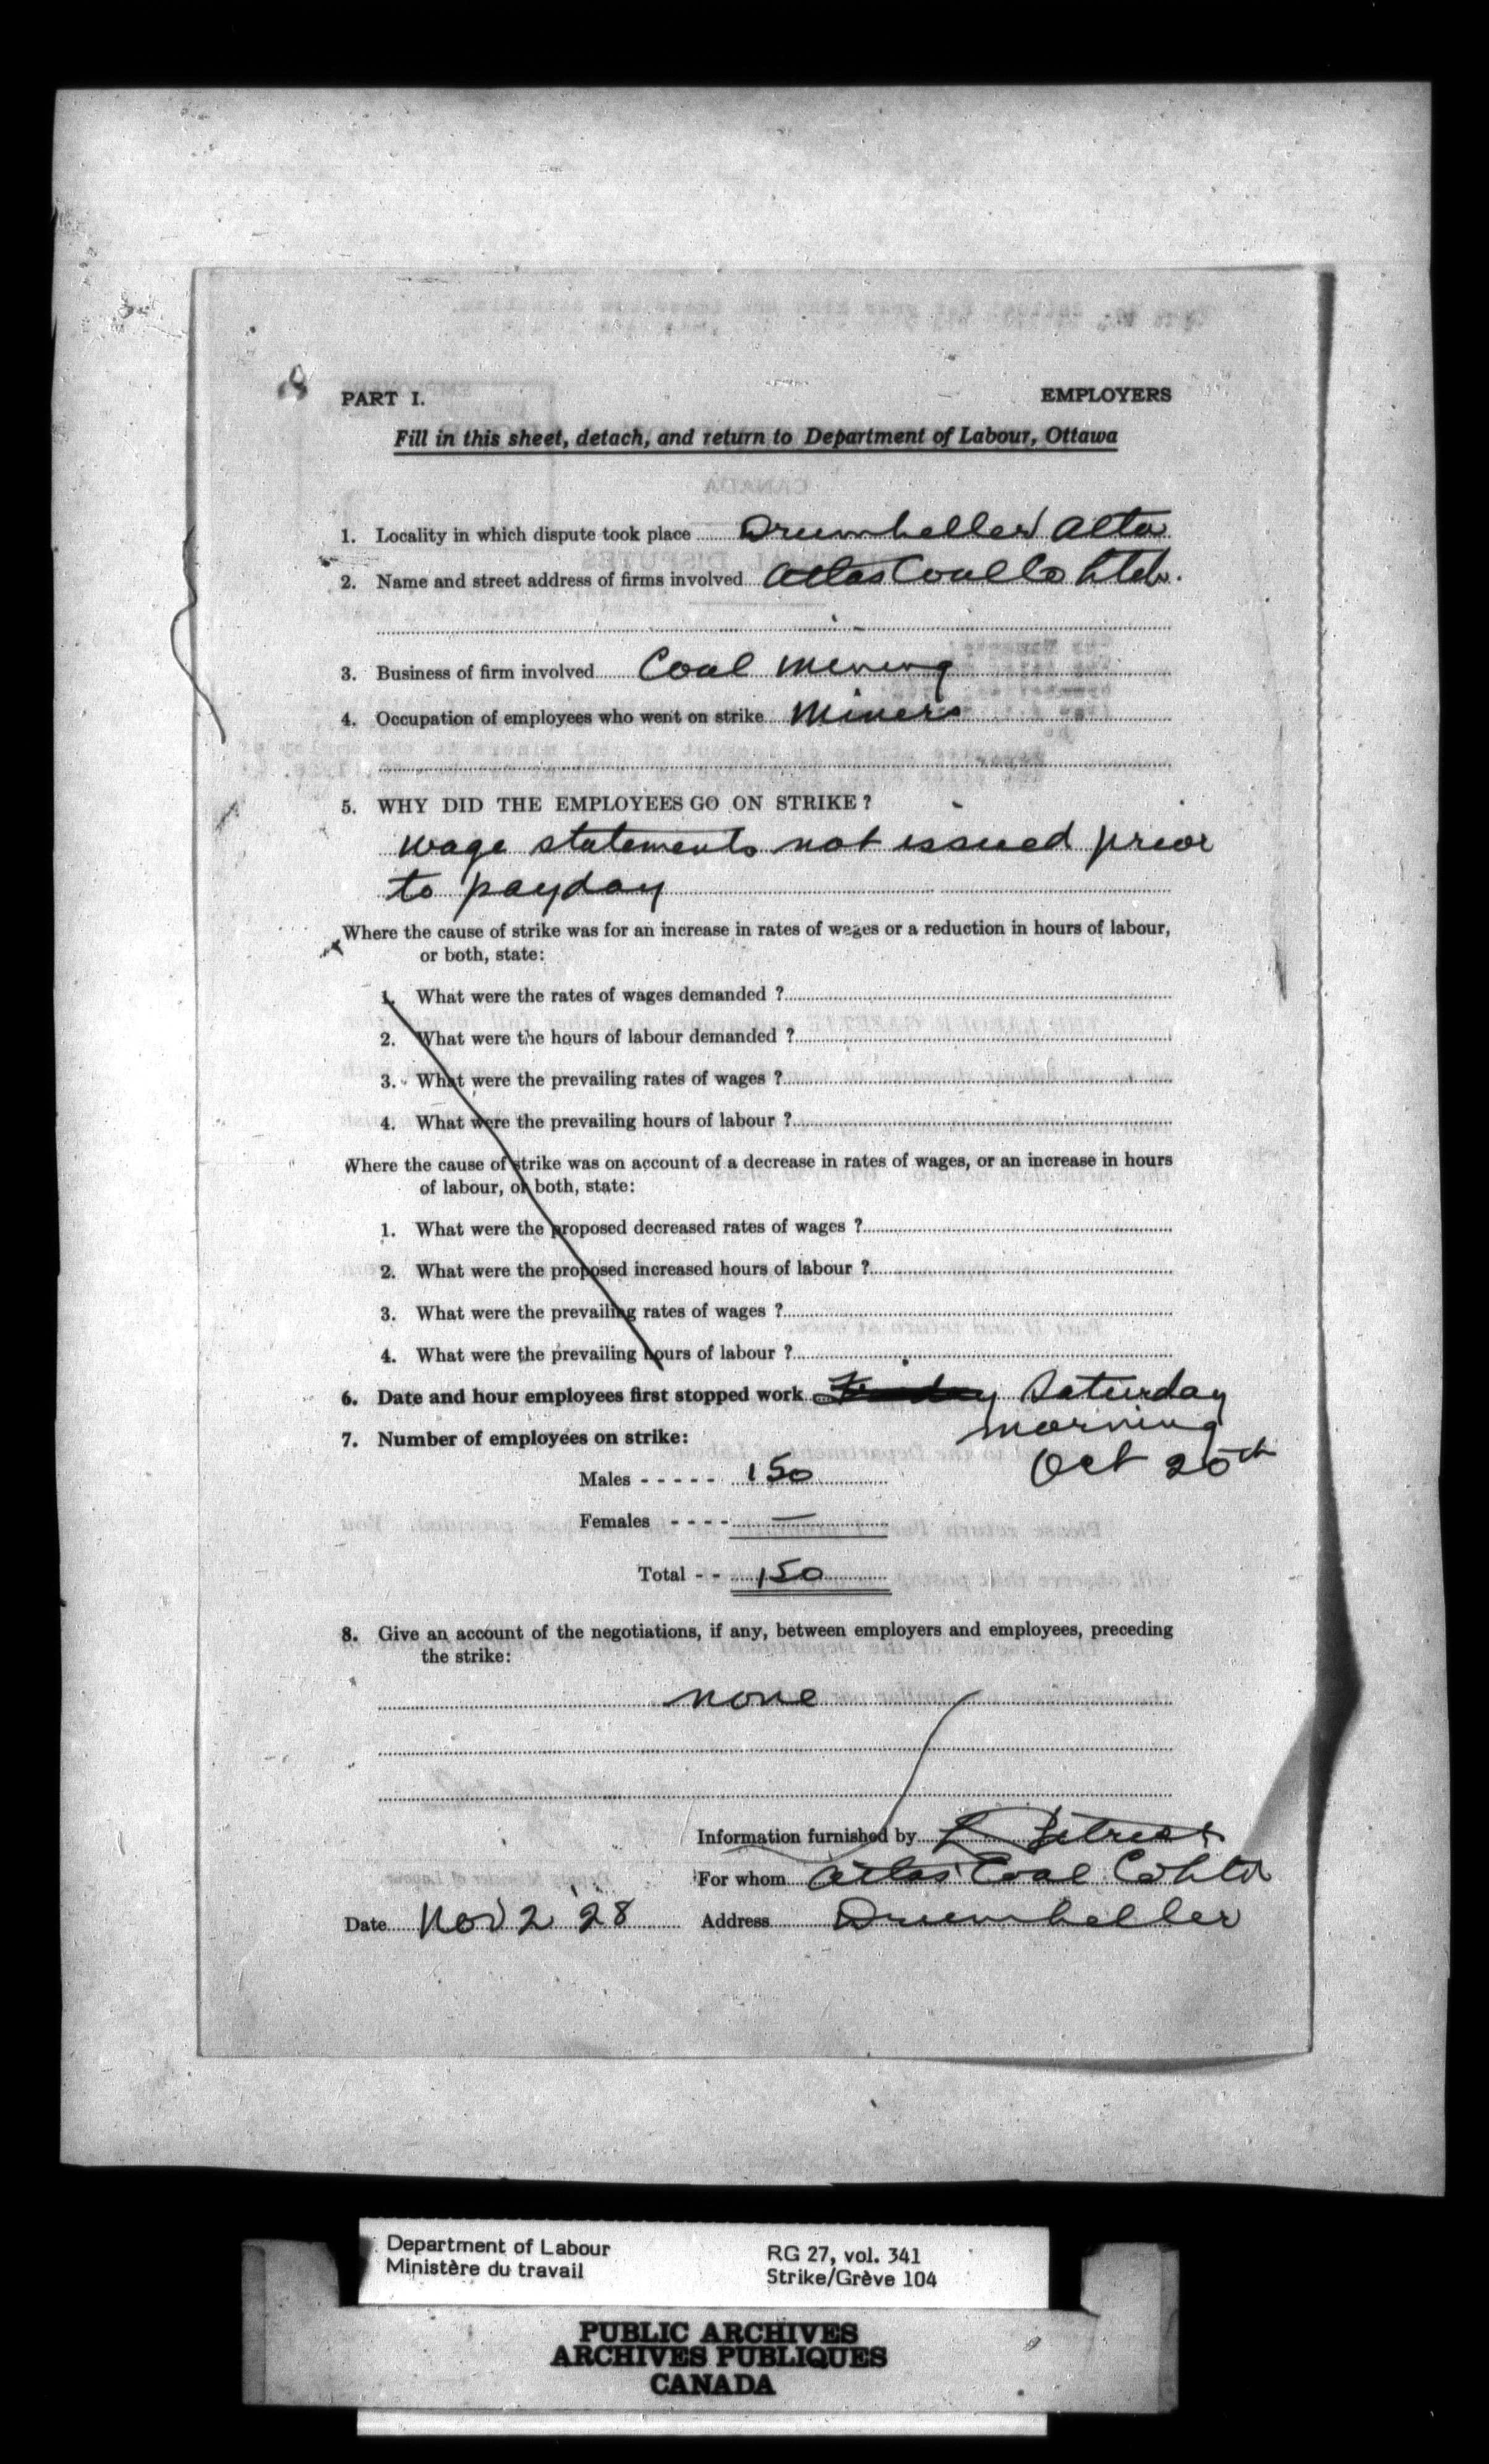 PART I.
EMPLOYERS
Fill in this sheet, detach, and return to Department of Labour, Ottawa
1. Locality in which dispute took place Drumheller Alta
2. Name and street address of firms involved Atlas Coal Co Ltd.
3. Business of firm involved Coal Mining
4. Occupation of employees who went on strike Miners
5. WHY DID THE EMPLOYEES GO ON STRIKE?
wage statements not issued prior
to payday
Where the cause of strike was for an increase in rates of wages or a reduction in hours of labour,
or both, state:
1. What were the rates of wages demanded ?
2. What were the hours of labour demanded ?
3. What were the prevailing rates of wages ?
4. What were the prevailing hours of labour ?
Where the cause of strike was on account of a decrease in rates of wages, or an increase in hours
of labour, or both, state:
1. What were the proposed decreased rates of wages ?
2. What were the proposed increased hours of labour ?
3. What were the prevailing rates of wages ?
4. What were the prevailing hours of labour ?
6. Date and hour employees first stopped work Friday Saturday
morning
7. Number of employees on strike:
Oct 20th
Males - - - - - 150
Females - - - - —
Total - - 150
8. Give an account of the negotiations, if any, between employers and employees, preceding
the strike:
none
Information furnished by
For whom Atlas Coal Co Ltd
Date Nov 2 '28 Address Drumheller
Department of Labour
Ministère du travail
RG 27, vol. 341
Strike/Grève 104
PUBLIC ARCHIVES
ARCHIVES PUBLIQUES
CANADA